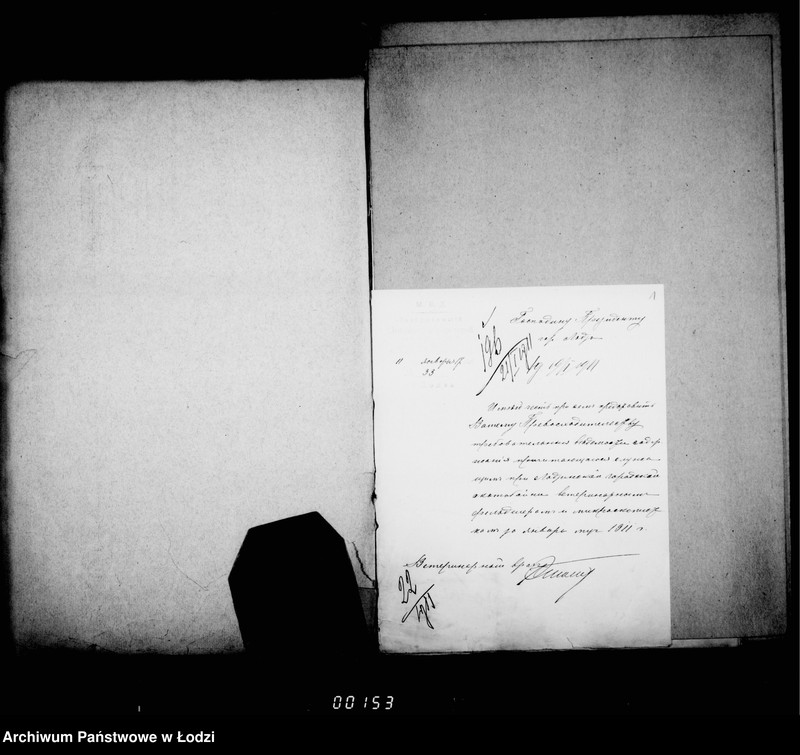 Господину Президенту
гор. Лодзи
196
21/I 1911
19/I 1911
11 января
33
Имею честь при сем представить
Вашему Превосходительству
требовательныя ведомости
содержания причитающагося служа-
щим при Лодзинской городской
скотобойни ветеринарным
фельдшерам и микроскопис-
там за январь м-ц 1911 г.
Ветеринарный врач
22
1911
00153
Archiwum Państwowe w Łodzi